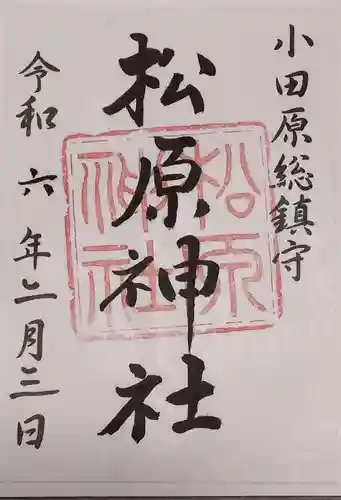 小田原総鎮守
松原神社
令和六年二月三日
松原
神社